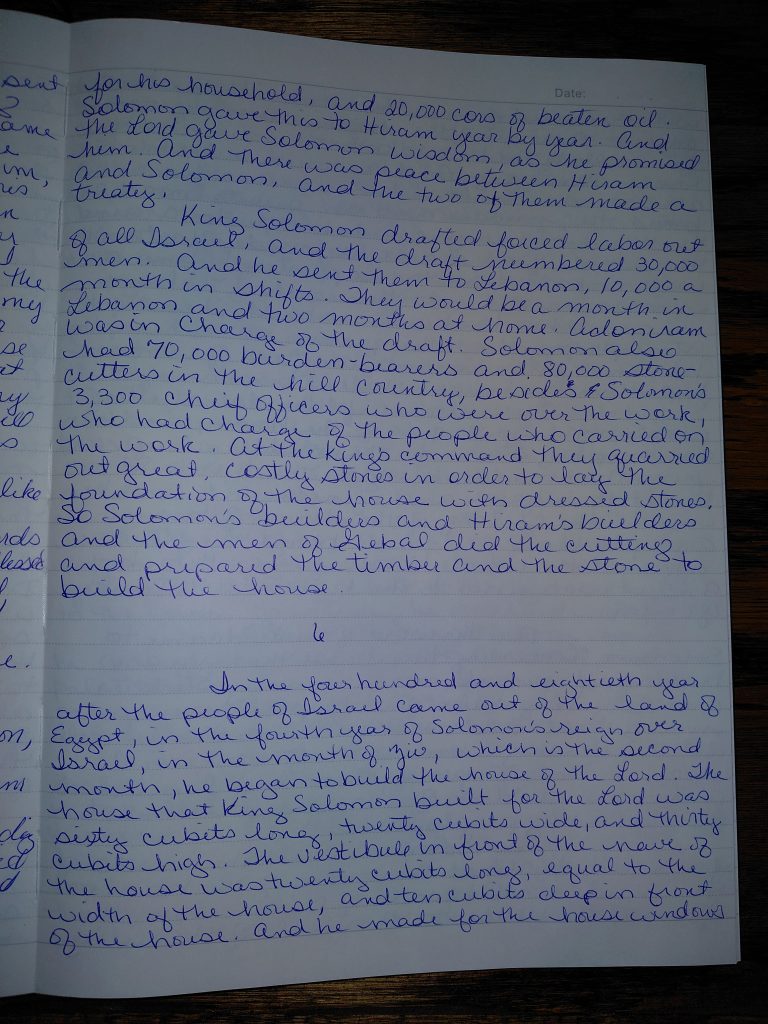 Date:
for his household, and 20,000 cors of beaten oil.
Solomon gave this to Hiram year by year. And
the Lord gave Solomon wisdom, as he promised
him. And there was peace between Hiram
and Solomon, and the two of them made a
treaty.
King Solomon drafted forced labor out
of all Israel, and the draft numbered 30,000
men. And he sent them to Lebanon, 10,000 a
month in shifts. They would be a month in
Lebanon and two months at home. Adoniram
was in charge of the draft. Solomon also
had 70,000 burden-bearers and 80,000 stone-
cutters in the hill country, besides Solomon's
3,300 cheif officers who were over the work,
who had charge of the people who carried on
the work. At the kings command they quarried
out great, costly stones in order to lay the
foundation of the house with dressed stones.
So Solomon's builders and Hiram's builders
and the men of Gebal did the cutting
and prepared the timber and the stone to
build the house.
6
In the four hundred and eightieth year
after the people of Israel came out of the land of
Egypt, in the fourth year of Solomon's reign over
Israel, in the month of Ziv, which is the second
month, he began to build the house of the Lord. The
house that King Solomon built for the Lord was
sixty cubits long, twenty cubits wide, and thirty
cubits high. The vestibule in front of the nave of
the house was twenty cubits long, equal to the
width of the house, and ten cubits deep in front
of the house. And he made for the house windows
sent
ame
im,
the
my
like